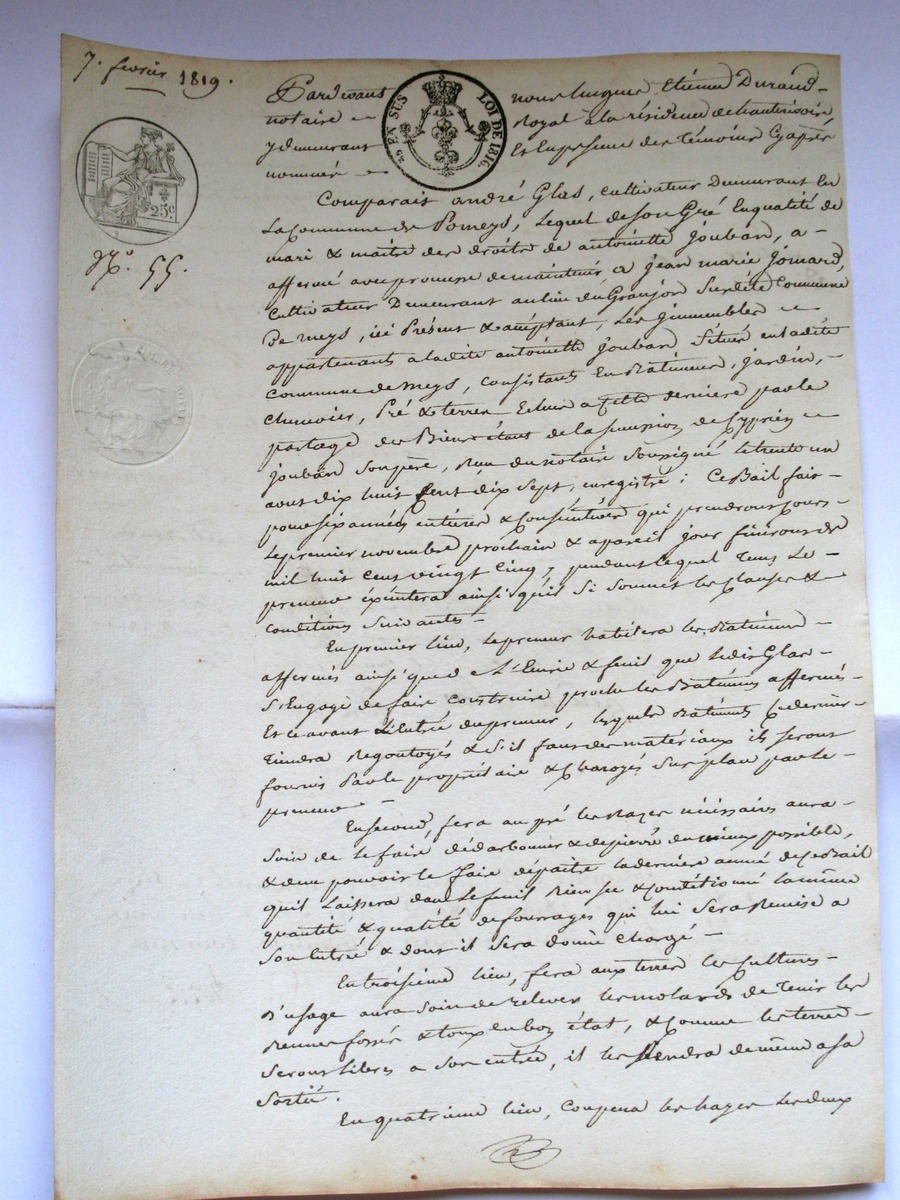 7. fevrier 1819.
Pardevant nous hugues Etienne Durand
notaire Royal à la résidence de hauterivoire
y demeurant Et En présence des témoins Cy après
nommés
EN SUS LOI DE 1816.
25c
N.º 55.
Comparait andré Glas, cultivateur Demeurant En
La Commune de Pomeys, Lequel de son Gré En qualité de
mari & maitre des droits de antoinette Jouban, a
affermé avec promesse de maintenir a Jean marie Jomard,
Cultivateur Demeurant au lieu du Granjon Susdite Commune
De meys, ici Présent & acceptant, Les Immeubles
appartenants a ladite antoinette Jouban Situés en ladite
Commune de meys, Consistants En Bâtiments, Jardin,
Chenevier, Pré & terres Echus a Cette dernière par le
partage des Biens étant de la succession de Cyprien
Jouban Son père, Reçu du notaire Soussigné le trente un
aout dix huit Cent dix Sept, enregistré; Ce Bail fait
pour six années entières & Consécutives qui prendront cours
Le premier novembre prochain & a pareil jour finiront de
mil huit Cent vingt Cinq, pendant lequel tems Le
preneur éxécutera ainsi qu'il Si Soumet les Clauses &
Conditions Suivantes
En premier lieu, Le preneur habitera les Bâtiments
affermés ainsi que L'Ecurie & fenil que ledit Glas
S'Engage de faire Construire proche les Bâtiments affermés
Et Ce avant L'Entrée du preneur, lesquels Bâtiments Ce dernier
tiendra Regoutoyés & S'il faut des matériaux ils Seront
fournis Par le propriétaire & Charoyés Sur place par le
preneur
En Second, fera au pré les Razes nécéssaires aura
Soin de le faire dédarbonner & depierré du mieux possible,
& sans pouvoir le faire dépaitre la dernière année de Ce Bail
quil Laissera dans Le fenil Bien Sec & Conditionné la même
quantité & qualité de fourrages qui lui Sera Remise a
Son Entrée & dont il Sera donné Chargé
En troisième lieu, fera aux terres les Cultures
D'usage aura Soin de relever les molards de tenir les
Rennes fossés & toux en bon état, & Comme les terres
Seront libres a Son entrée, il les Rendra de même a Sa
Sortie.
En quatrieme lieu, Coupera les hayes Les deux